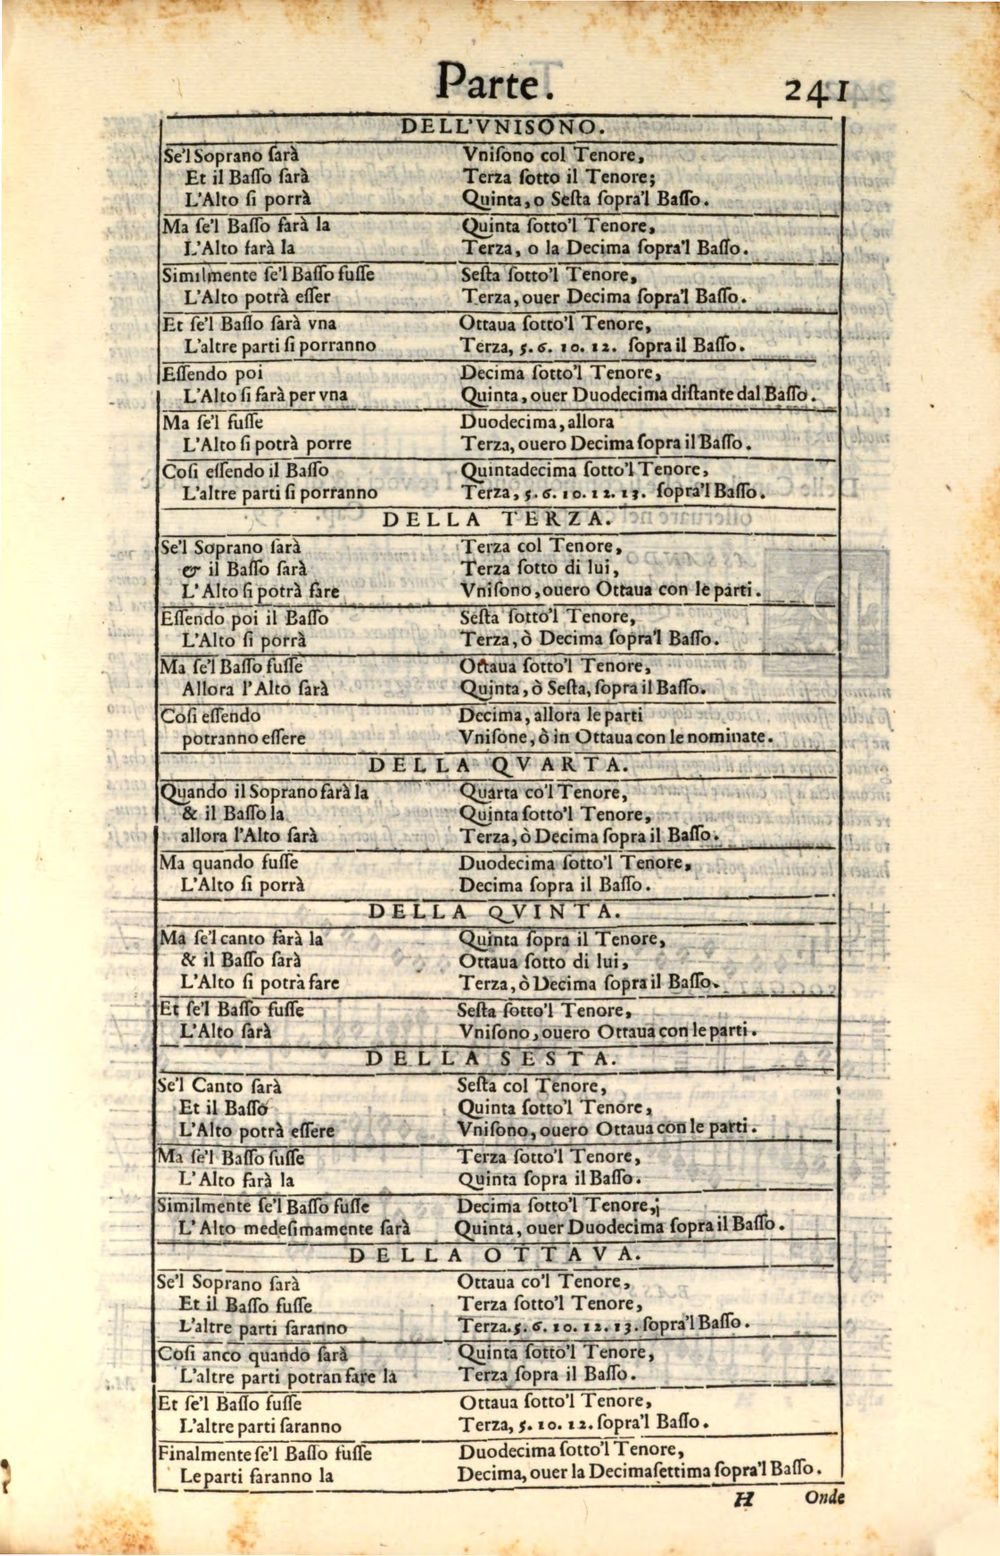 Parte. 241
DELL'VNISONO.
Se'l Soprano ſarà Vniſono col Tenore,
Et il Baſſo ſarà Terza ſotto il Tenore;
L'Alto ſi porrà Quinta, o Seſta ſopra'l Baſſo.
Ma ſe'l Baſſo ſarà la Quinta ſotto'l Tenore,
L'Alto ſarà la Terza, o la Decima ſopra'l Baſſo.
Similmente ſe'l Baſſo fuſſe Seſta ſotto'l Tenore,
L'Alto potrà eſſer Terza, ouer Decima ſopra'l Baſſo.
Et ſe'l Baſſo ſarà vna Ottaua ſotto'l Tenore,
L'altre parti ſi porranno Terza, 5. 6. 10. 12. ſopra il Baſſo.
Eſſendo poi Decima ſotto'l Tenore,
L'Alto ſi farà per vna Quinta, ouer Duodecima diſtante dal Baſſo.
Ma ſe'l fuſſe Duodecima, allora
L'Alto ſi potrà porre Terza, ouero Decima ſopra il Baſſo.
Coſi eſſendo il Baſſo Quintadecima ſotto'l Tenore,
L'altre parti ſi porranno Terza, 5. 6. 10. 12. 13. ſopra'l Baſſo.
DELLA TERZA.
Se'l Soprano ſarà Terza col Tenore,
& il Baſſo ſarà Terza ſotto di lui,
L'Alto ſi potrà fare Vniſono, ouero Ottaua con le parti.
Eſſendo poi il Baſſo Seſta ſotto'l Tenore,
L'Alto ſi porrà Terza, ò Decima ſopra'l Baſſo.
Ma ſe'l Baſſo fuſſe Ottaua ſotto'l Tenore,
Allora l'Alto ſarà Quinta, ò Seſta, ſopra il Baſſo.
Coſi eſſendo Decima, allora le parti
potranno eſſere Vniſone, ò in Ottaua con le nominate.
DELLA QVARTA.
Quando il Soprano ſarà la Quarta co'l Tenore,
& il Baſſo la Quinta ſotto'l Tenore,
allora l'Alto ſarà Terza, ò Decima ſopra il Baſſo.
Ma quando fuſſe Duodecima ſotto'l Tenore,
L'Alto ſi porrà Decima ſopra il Baſſo.
DELLA QVINTA.
Ma ſe'l canto ſarà la Quinta ſopra il Tenore,
& il Baſſo ſarà Ottaua ſotto di lui,
L'Alto ſi potrà fare Terza, ò Decima ſopra il Baſſo.
Et ſe'l Baſſo fuſſe Seſta ſotto'l Tenore,
L'Alto ſarà Vniſono, ouero Ottaua con le parti.
DELLA SESTA.
Se'l Canto ſarà Seſta col Tenore,
Et il Baſſo Quinta ſotto'l Tenore,
L'Alto potrà eſſere Vniſono, ouero Ottaua con le parti.
Ma ſe'l Baſſo fuſſe Terza ſotto'l Tenore,
L'Alto ſarà la Quinta ſopra il Baſſo.
Similmente ſe'l Baſſo fuſſe Decima ſotto'l Tenore,;
L'Alto medeſimamente ſarà Quinta, ouer Duodecima ſopra il Baſſo.
DELLA OTTAVA.
Se'l Soprano ſarà Ottaua co'l Tenore,
Et il Baſſo fuſſe Terza ſotto'l Tenore,
L'altre parti ſaranno Terza. 5. 6. 10. 12. 13. ſopra'l Baſſo.
Coſi anco quando ſarà Quinta ſotto'l Tenore,
L'altre parti potran fare la Terza ſopra il Baſſo.
Et ſe'l Baſſo fuſſe Ottaua ſotto'l Tenore,
L'altre parti ſaranno Terza, 5. 10. 12. ſopra'l Baſſo.
Finalmente ſe'l Baſſo fuſſe Duodecima ſotto'l Tenore,
Le parti ſaranno la Decima, ouer la Decimaſettima ſopra'l Baſſo.
H Onde